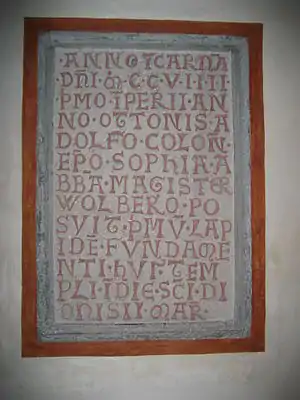 ·ANNO·ĪCARNA
DN̄I·M̄·C·C·V·I·I·I·I·
P̄MO·ĪPERII·AN
NO·OTTONIS·A
DOLFO·COLON̄·
EP̄O·SOPHIA·A
BB̄A·MAGISTER
WOLBERO·PO
SVIT·P̄MV̄·LAP
IDĒ·FVNDAME
NTI·hVI'·TEM
PLI·ĪDIE·SC̄I·DI
ONISII·MAR̄·